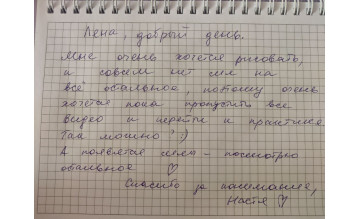 Лена, добрый день.
Мне очень хочется рисовать,
и совсем нет сил на
всё остальное, поэтому очень
хочется пока пропустить все
видео и перейти к практике
Так можно? :)
А появятся силы - посмотрю
остальное ♡
Спасибо за понимание,
Настя ♡